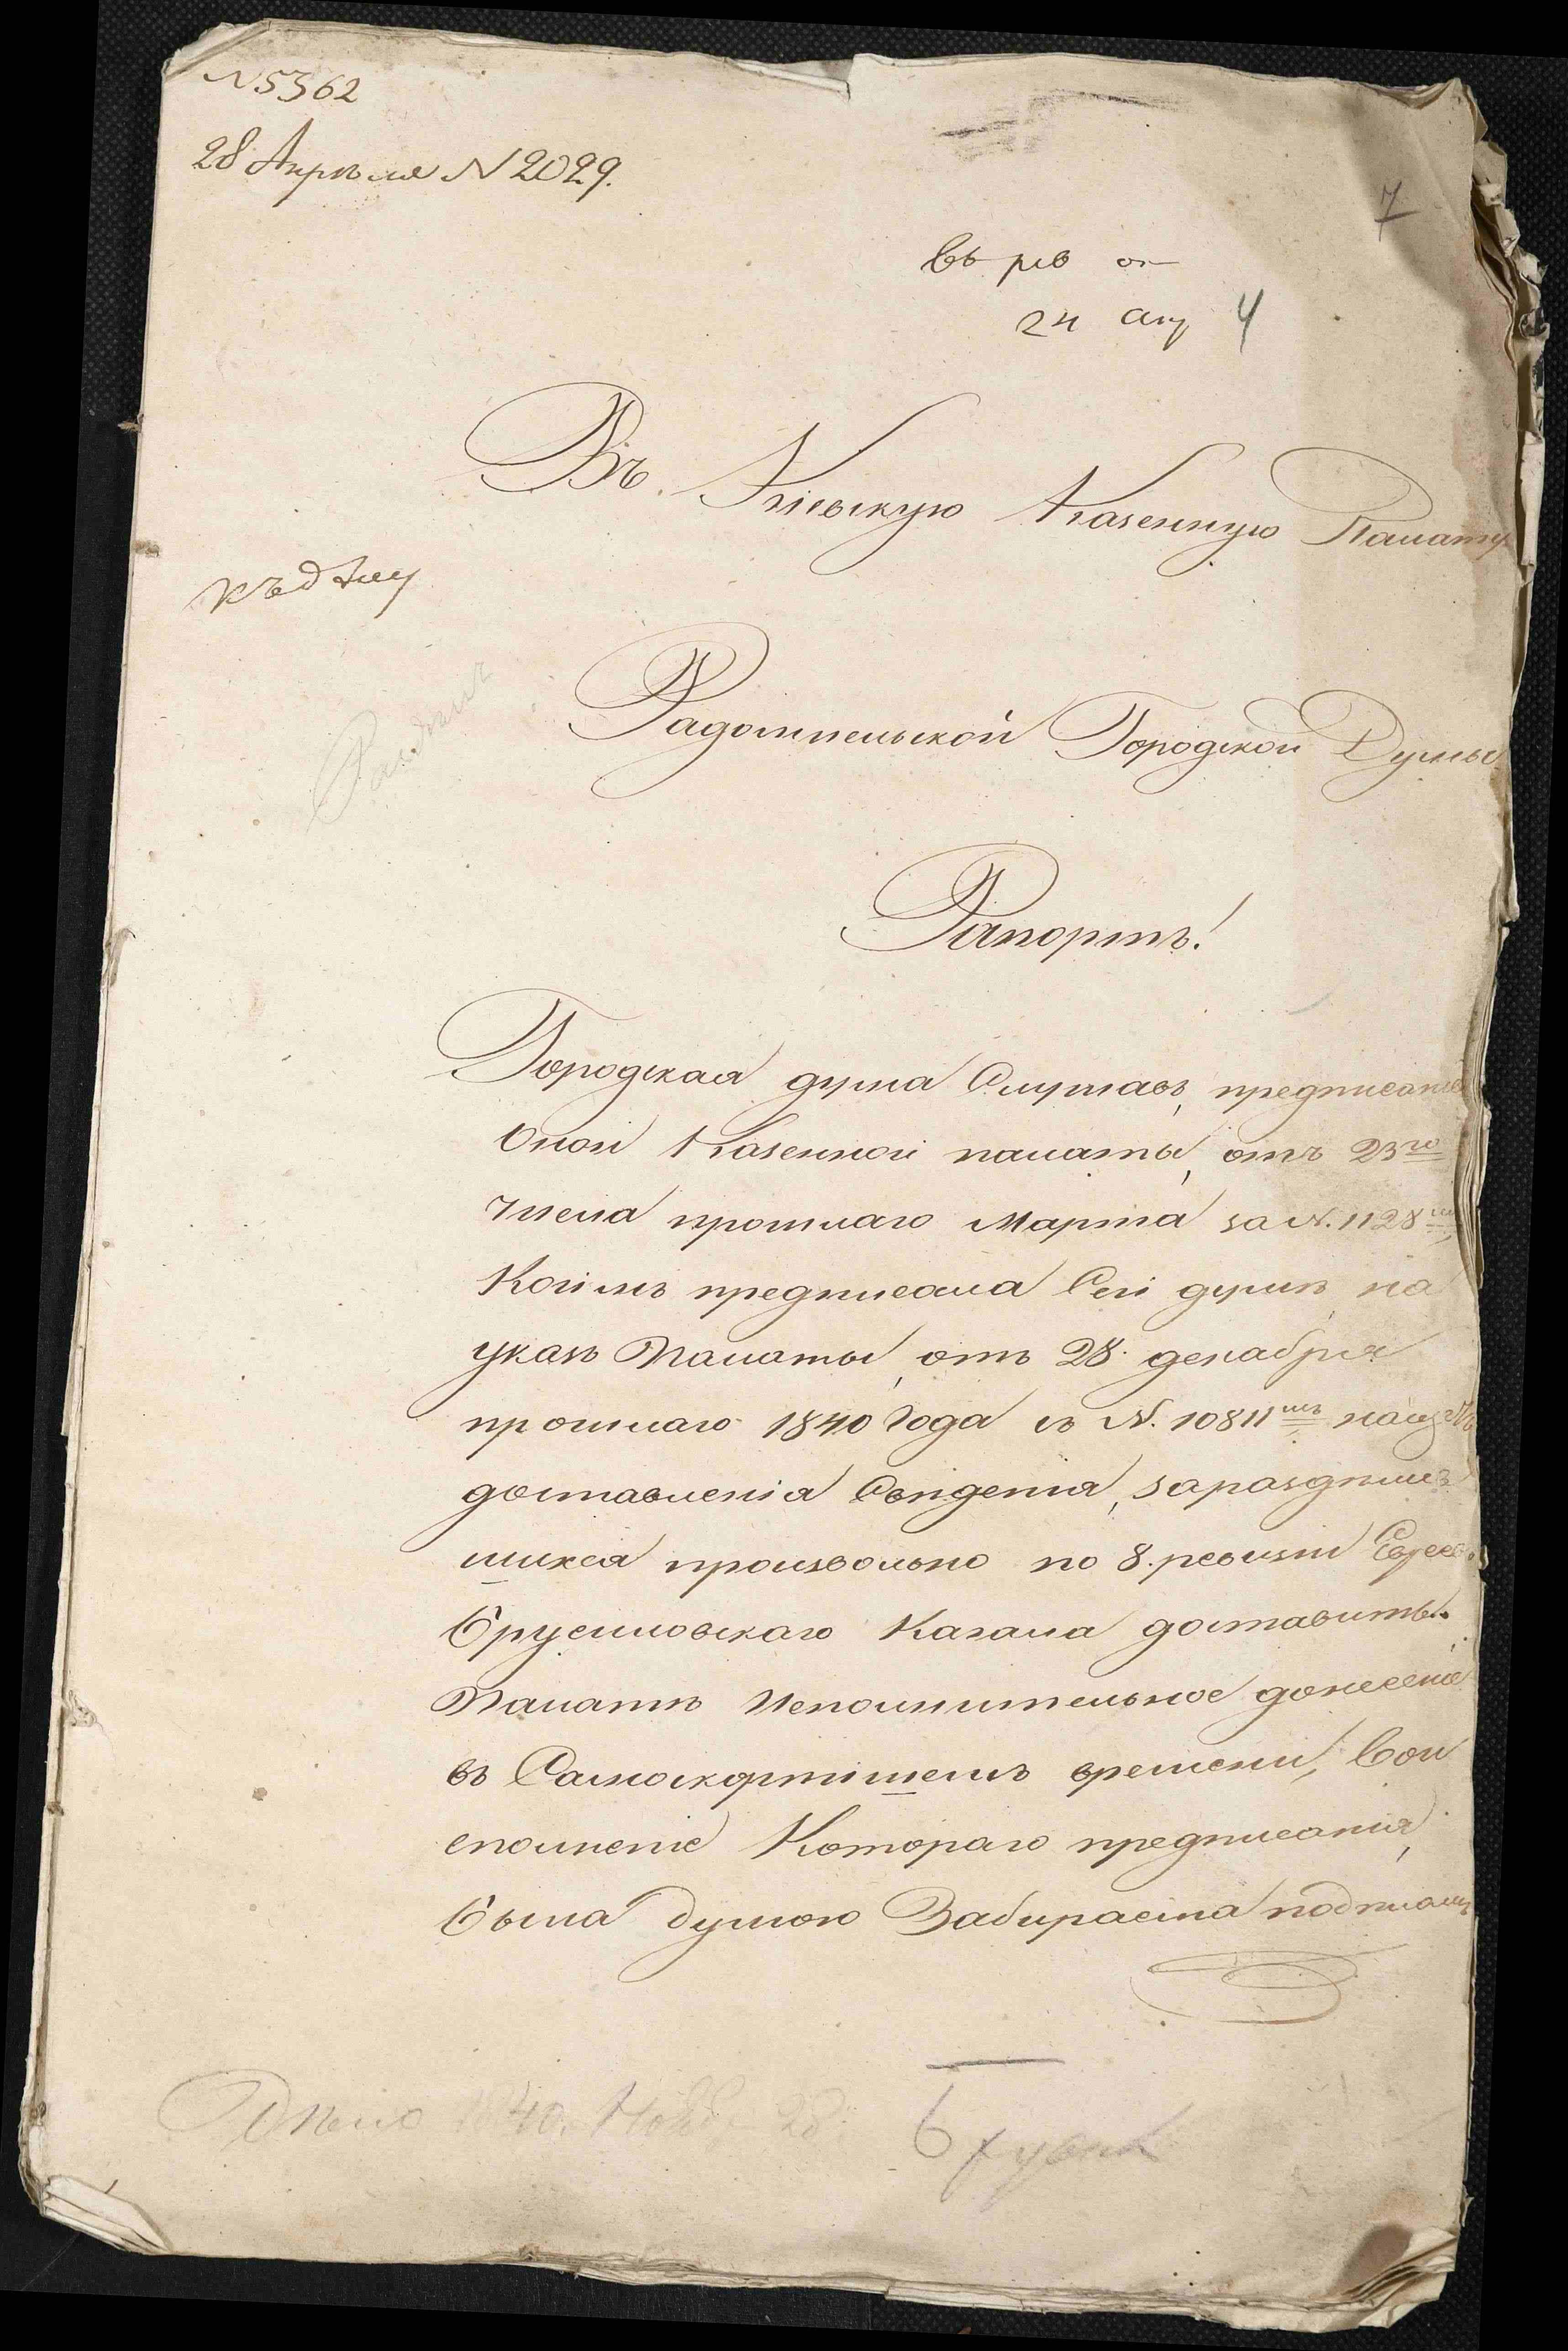 N 5362
28 Апрѣля N 2029.
7
въ рев
24 апр 4
Въ Кіевскую Казенную Палату
къ дѣлу
Радомысльской Городской Думы
Рапортъ!
Городская дума Слушавъ, предписаніе
Оной Казенной палаты, отъ 23го
числа прошлаго Марта за N. 1128мъ
Коімъ предписала Сей думѣ, на
указъ Палаты, отъ 28. декабря
прошлаго 1840 года съ N. 10811мъ
доставленія Свѣденія, заразднив
шихся произвольно по 8. ревизіи Евреевъ
Брусиловскаго Кагала доставить
Палатѣ Исполнительное донесеніе
въ Самоскорѣтишемъ времени, Вои
сполненіе Котораго предписанія,
была думою Забираема
Дѣло 1840. Нояб. 28